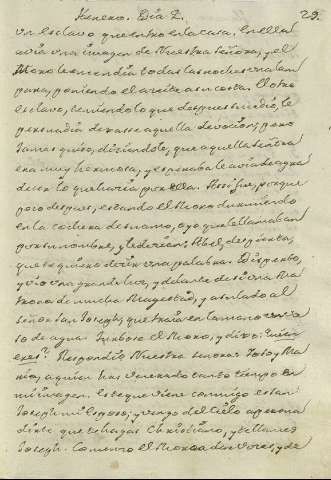 Henero. Dia 2. 29.
un esclavo que entro en la casa. En ella
avia una imagen de Nuestra Señora, y el
Moro le encendia todas las noches una lam
para, poniendo el aceite a su costa. El otro
esclavo, temiendo lo que despues sucedio, le
persuadia dexasse aquella devocion; pero
jamas quiso, diziendole, que aquella Señora
era muy hermosa, y esperaba le avia de agra
decer lo que hacia por ella. Assi fue, porque
poco despues, estando el Moro durmiendo
en la cochera de su amo, oyo que le llamaban
por su nombre, y le dezian: Abel, despierta,
que te quiero dezir una palabra. Desperto,
y vio una grande luz, y delante de si una Ma
trona de mucha Magestad, y a su lado al
señor San Joseph, que traia en la mano un va
so de agua. Turbose el Moro, y dixo: Quien
eres? Respondio Nuestra Señora: Yo soy Ma
ria, a quien has venerado tanto tiempo en
mi imagen. Este que viene conmigo es San
Joseph mi Esposo; y vengo del Cielo a persua
dirte que te hagas Christiano, y te llames
Joseph. Comenzo el Moro a dar voces, y de